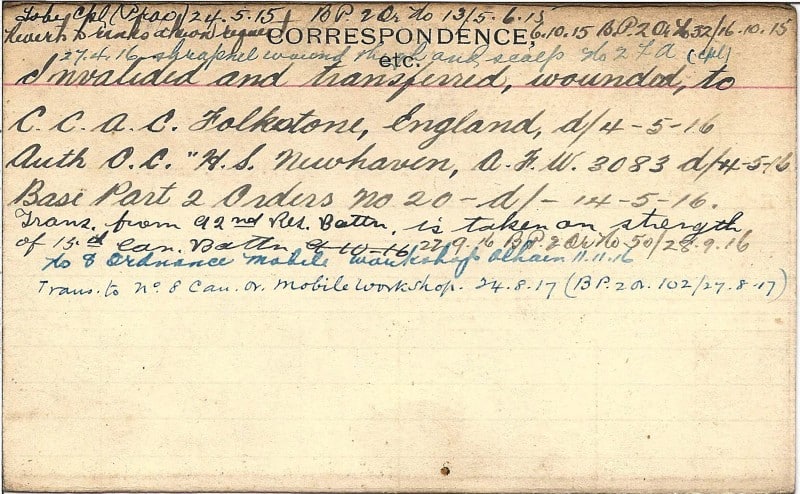 To be Cpl (Prov) 24.5.15 B P. 2 Or No 13/5.6.15
Reverts to ranks at own request 6.10.15 B P. 2 Or No 32/16.10.15
CORRESPONDENCE,
etc.
27.4.16 shrapnel wound and scalp No 2 F A (Cpl)
Invalided and transferred, wounded, to
C. C. A. C. Folkstone, England, d/4-5-16
Auth O.C. "H.S. Newhaven, A.F.W. 3083 d/4-5-16
Base Part 2 Orders No 20 - d/- 14-5-16.
Trans. from 92nd Res. Battn. is taken on strength
of 15th Can. Battn 9-10-16 27.9.16 B P. 2 Or No 50/28.9.16
to 8 Ordnance mobile workshop 11.11.16
Trans. to No. 8 Can. Or. Mobile Workshop. 24.8.17 (B P. 2 Or. 102/27.8.17)